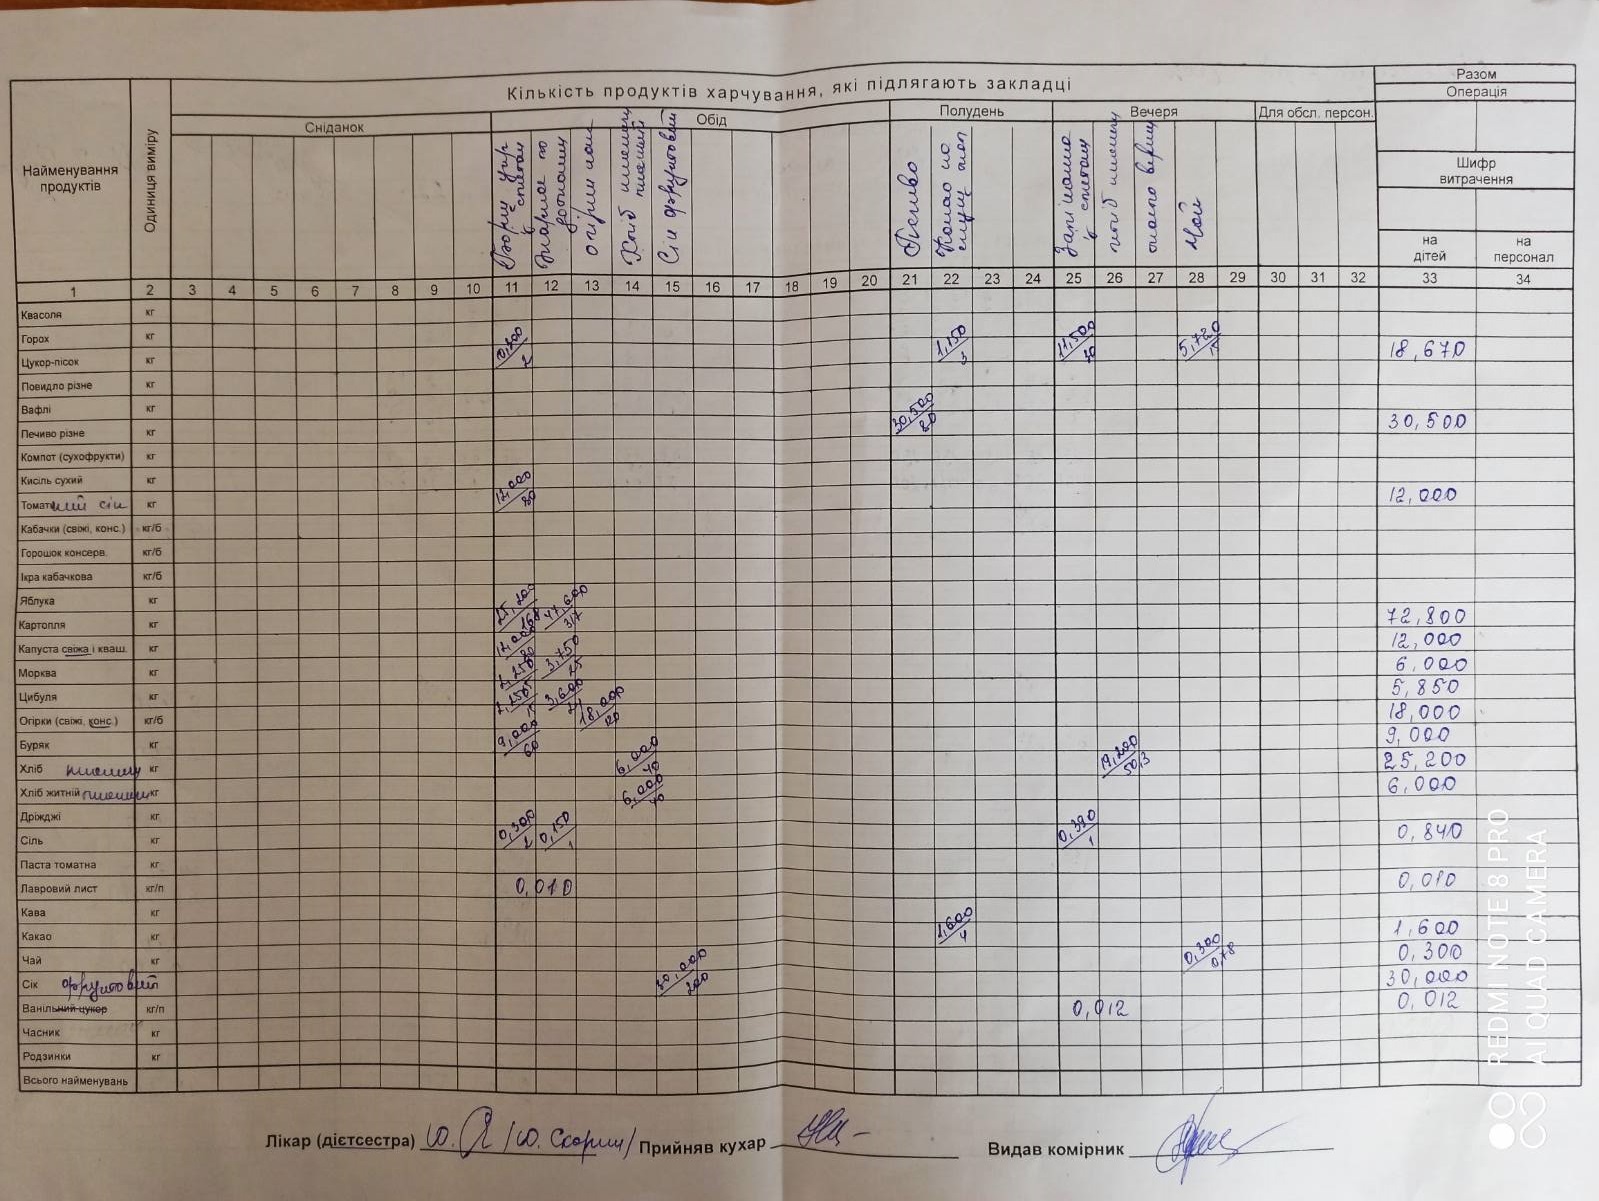 Разом
Кількість продуктів харчування, які підлягають закладці
Операція
Сніданок Обід Полудень Вечеря Для обсл. персон.
Найменування продуктів
Одиниця виміру
Борщ укр. з сметан.
Жаркое по домашньому
огірки конс
Хліб пшеничн
Сік фруктовий
Печиво
Какао
Запіканка з сметан
хліб пшеничн
масло верш
Чай
Шифр витрачення
на дітей
на персонал
1 2 3 4 5 6 7 8 9 10 11 12 13 14 15 16 17 18 19 20 21 22 23 24 25 26 27 28 29 30 31 32 33 34
Квасоля кг
Горох кг
Цукор-пісок кг 2 1,150/3 11,500/30 5,720/15 18,670
Повидло різне кг
Вафлі кг
Печиво різне кг 30,500/80 30,500
Компот (сухофрукти) кг
Кисіль сухий кг
Томатний сік кг 12,000/80 12,000
Кабачки (свіжі, конс.) кг/б
Горошок консерв. кг/б
Ікра кабачкова кг/б
Яблука кг
Картопля кг 25,200/168 47,600/317 72,800
Капуста свіжа і кваш. кг 12,000/80 12,000
Морква кг 2,250 3,750/25 6,000
Цибуля кг 2,250/15 3,600/24 5,850
Огірки (свіжі, конс.) кг/б 18,000/120 18,000
Буряк кг 9,000/60 9,000
Хліб пшеничн кг 6,000/40 19,200/50,3 25,200
Хліб житній пшеничн кг 6,000/40 6,000
Дріжджі кг
Сіль кг 0,300/2 0,150/1 0,390/1 0,840
Паста томатна кг
Лавровий лист кг/п 0,010 0,010
Кава кг
Какао кг 1,600/4 1,600
Чай кг 0,300/0,78 0,300
Сік фруктовий 30,000/200 30,000
Ванільний цукор кг/п 0,012 0,012
Часник кг
Родзинки кг
Всього найменувань
Лікар (дієтсестра) Прийняв кухар Видав комірник
REDMI NOTE 8 PRO
AI QUAD CAMERA